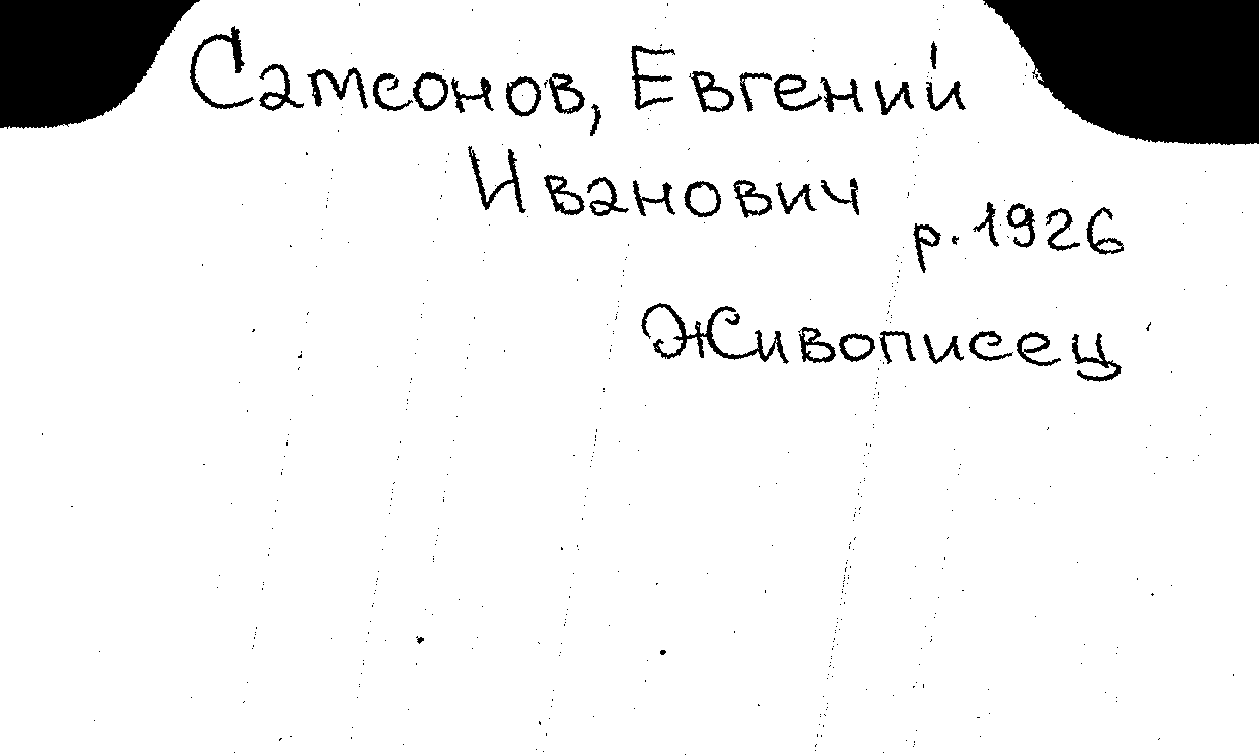 Самсонов, Евгений
Иванович
р. 1926
Живописец